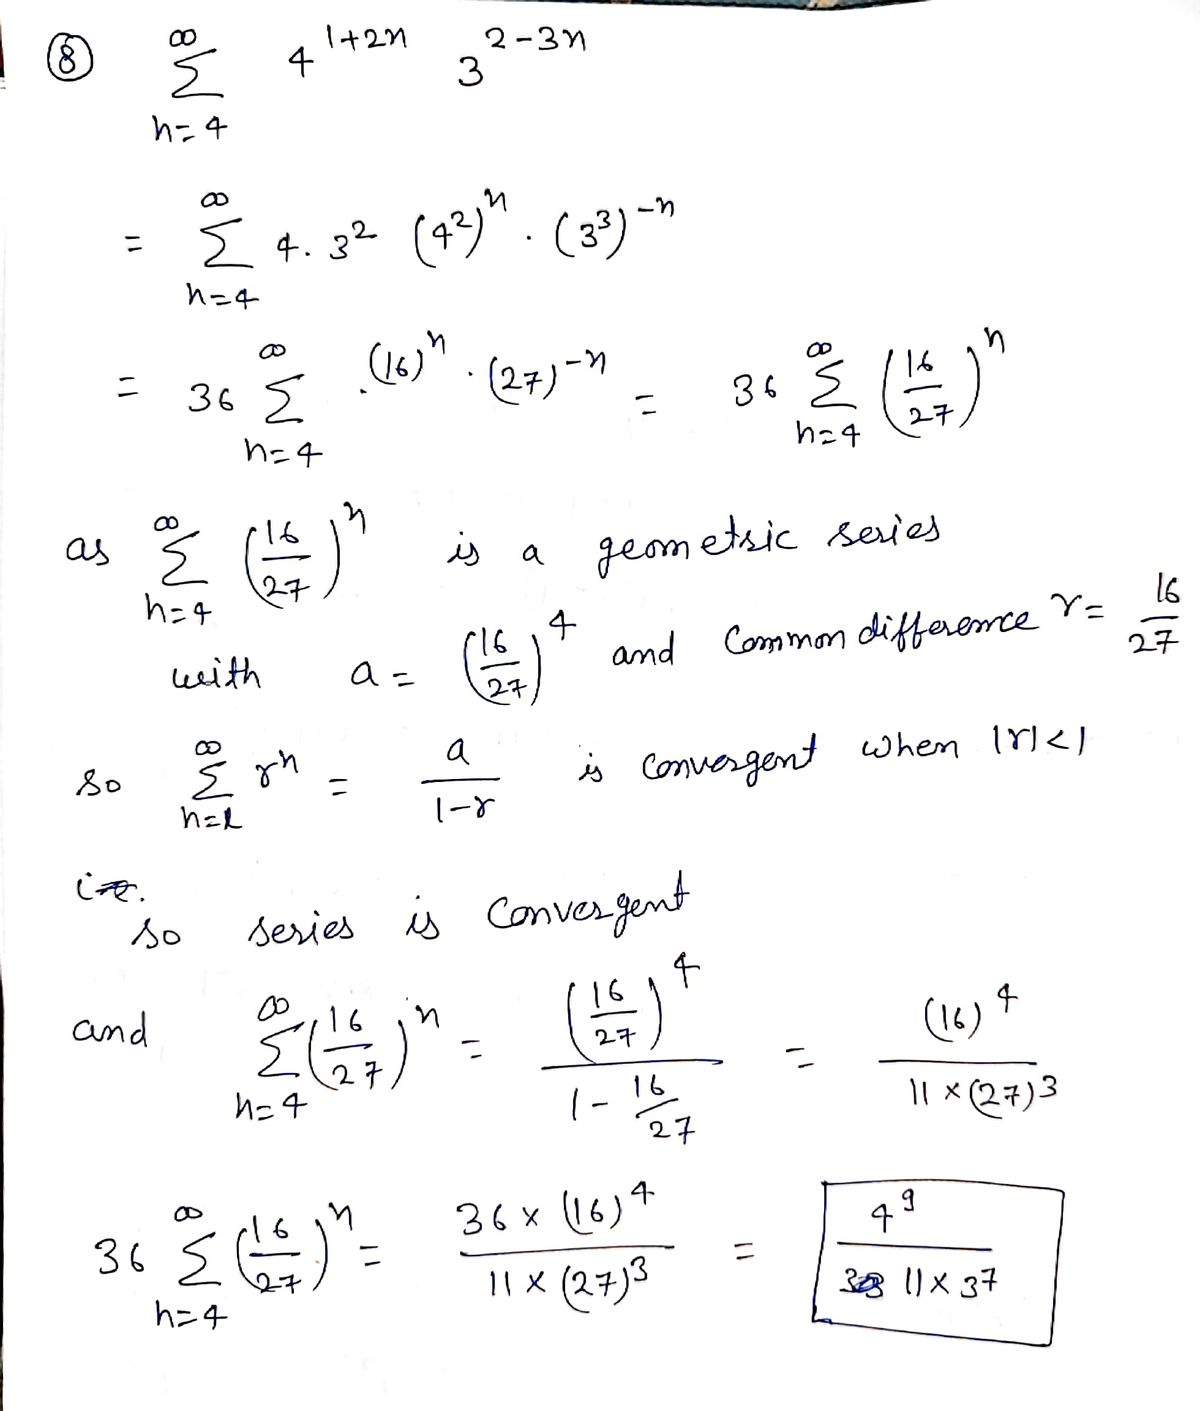 ⑧ ∞ Σ n=4 4^(1+2n) 3^(2-3n)
= ∞ Σ n=4 4. 3^2 (4^2)^n . (3^3)^(-n)
= 36 ∞ Σ n=4 .(16)^n . (27)^(-n) = 36 ∞ Σ n=4 (16/27)^n
as ∞ Σ n=4 (16/27)^n is a geometric series
with a = (16/27)^4 and Common difference r = 16/27
so ∞ Σ n=1 r^n = a/(1-r) is convergent when |r|<1
i.e.
so series is convergent
and ∞ Σ n=4 (16/27)^n = (16/27)^4 / (1 - 16/27) = (16)^4 / (11 × (27)^3)
36 ∞ Σ n=4 (16/27)^n = 36 × (16)^4 / (11 × (27)^3) = 4^9 / (11 × 3^7)